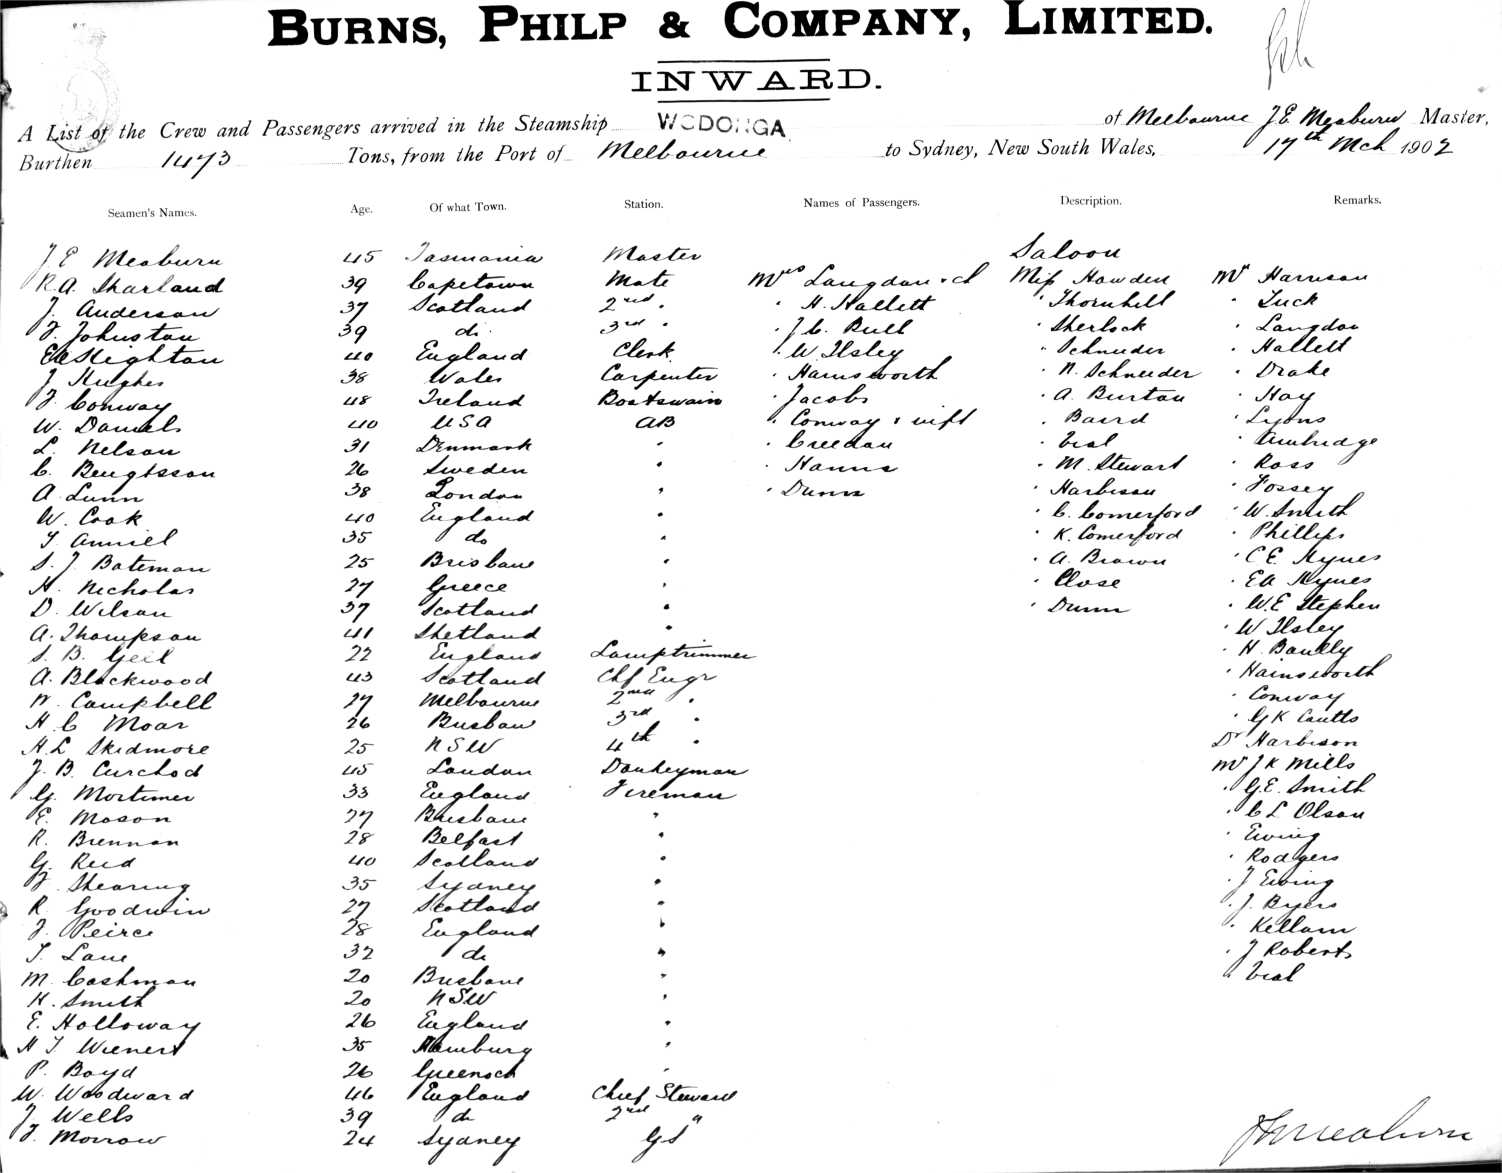 BURNS, PHILP & COMPANY, LIMITED.
INWARD.
A List of the Crew and Passengers arrived in the Steamship WODONGA of Melbourne J E Meaburn Master,
Burthen 1473 Tons, from the Port of Melbourne to Sydney, New South Wales, 17th Mch 1902
Seamen's Names. Age. Of what Town. Station. Names of Passengers. Description. Remarks.
J E Meaburn 45 Tasmania Master Saloon
R.A. Sharland 39 Capetown Mate Mrs Langdon & ch Miss Howden Mr Harrison
J. Anderson 37 Scotland 2nd " " H. Hallett " Thornhill " Tuck
J. Johnston 39 do 3rd " " J. C. Bull " Sherlock " Langdon
Leighton 40 England Clerk " W. Ilsley " Schneider " Hallett
J Hughes 38 Wales Carpenter " Hainsworth " N. Schneider " Drake
J. Conway 48 Ireland Boatswain " Jacobs " A. Burton " Hay
W. Daniels 40 USA AB " Conway & wife " Baird " Lyons
L. Nelson 31 Denmark " " Creedan " Veal " Ambridge
C. Bengtsson 26 Sweden " " Hanns " M. Stewart " Ross
A. Lunn 38 London " " Dunn " Harbison " Fossey
W. Cook 40 England " " C. Comerford " W. Smith
T. 35 do " " K. Comerford " Phillips
S. J. Bateman 25 Brisbane " " A. Brown " C E. Hynes
H. Nicholas 27 Greece " " Close " E A Hynes
D. Wilson 37 Scotland " " Dunn " W. E Stephen
A. Thompson 41 Shetland " " W Ilsley
S. B. Geil 22 England Lamptrimmer " H.
A. Blackwood 43 Scotland Chf Engr " Hainsworth
W. Campbell 27 Melbourne 2nd " " Conway
H C Moar 26 Brisbane 3rd " " G K Coutts
H. L Skidmore 25 NSW 4th " Dr Harbison
J. B. Curchod 45 London Donkeyman Mr J K Mills
G. Mortimer 33 England Fireman " G. E. Smith
E. Mason 27 Brisbane " " C L Olson
R. Brennan 28 Belfast " " Ewing
G. Reid 40 Scotland " " Rodgers
J. Shearing 35 Sydney " " J Ewing
R. Goodwin 27 Scotland " " J. Byers
J. Peirce 28 England " " Kellam
T. Lane 32 do " " J Roberts
M. Cashman 20 Brisbane " " Veal
H. Smith 20 NSW "
E. Holloway 26 England "
H J Wienert 35 Hamburg "
P. Boyd 26 Greenock "
W. Woodward 46 England Chief Steward
J Wells 39 do 2nd "
J. Morrow 24 Sydney GS
J E Meaburn